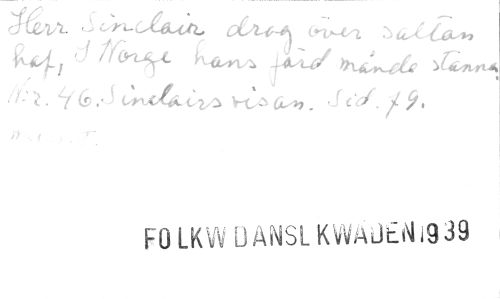 Herr Sinclair drog över saltan
haf, I Norge hans färd månde stanna.
N:r. 46. Sinclairsvisan. Sid. 79.
FOLKW DANSL KWÄDEN 1939